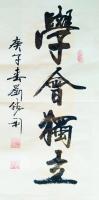 學會獨立
庚子春劉俊利